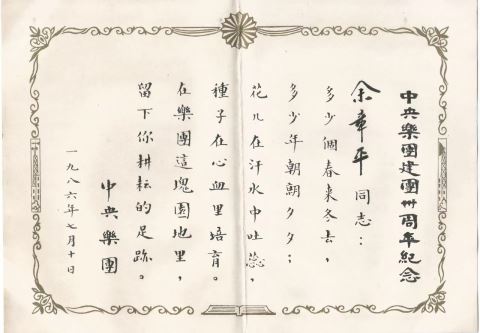 中央樂團建團卅周年紀念
余章平同志：
多少個春來冬去，
多少年朝朝夕夕；
花兒在汗水中吐蕊，
種子在心血里培育。
在樂團這塊園地里，
留下你耕耘的足跡。
中央樂團
一九八六年七月十日